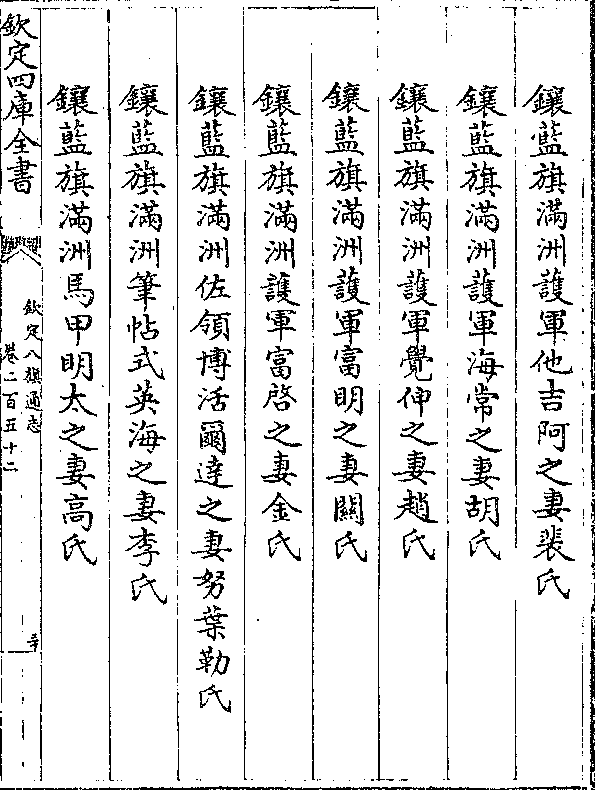 鑲藍旗滿洲護軍他吉阿之妻裴氏
鑲藍旗滿洲護軍海常之妻胡氏
鑲藍旗滿洲護軍覺伸之妻趙氏
鑲藍旗滿洲護軍富明之妻關氏
鑲藍旗滿洲護軍富啓之妻金氏
鑲藍旗滿洲佐領博活爾達之妻努葉勒氏
鑲藍旗滿洲筆帖式英海之妻李氏
鑲藍旗滿洲馬甲明太之妻高氏
欽定四庫全書
欽定八旗通志
卷二百五十二